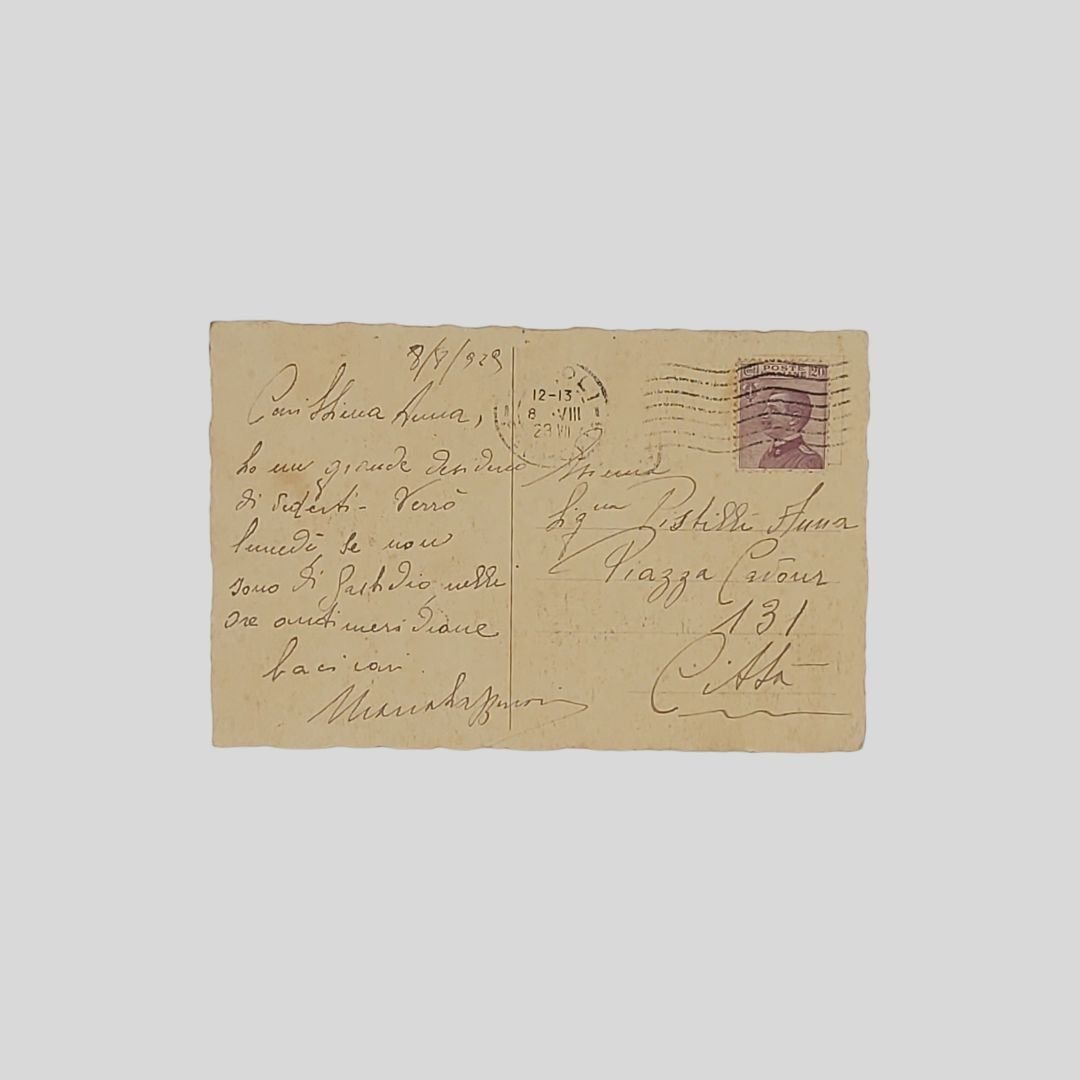 8/8/929
Carissima Anna,
ho un grande desiderio
di vederti - Verrò
lunedì, se non
sono di fastidio, nelle
ore antimeridiane
baci cari.
Maria
12-13
8 · VIII
29 VII
POSTE
20
Sig.na Pistilli Anna
Piazza Cavour
131
Città